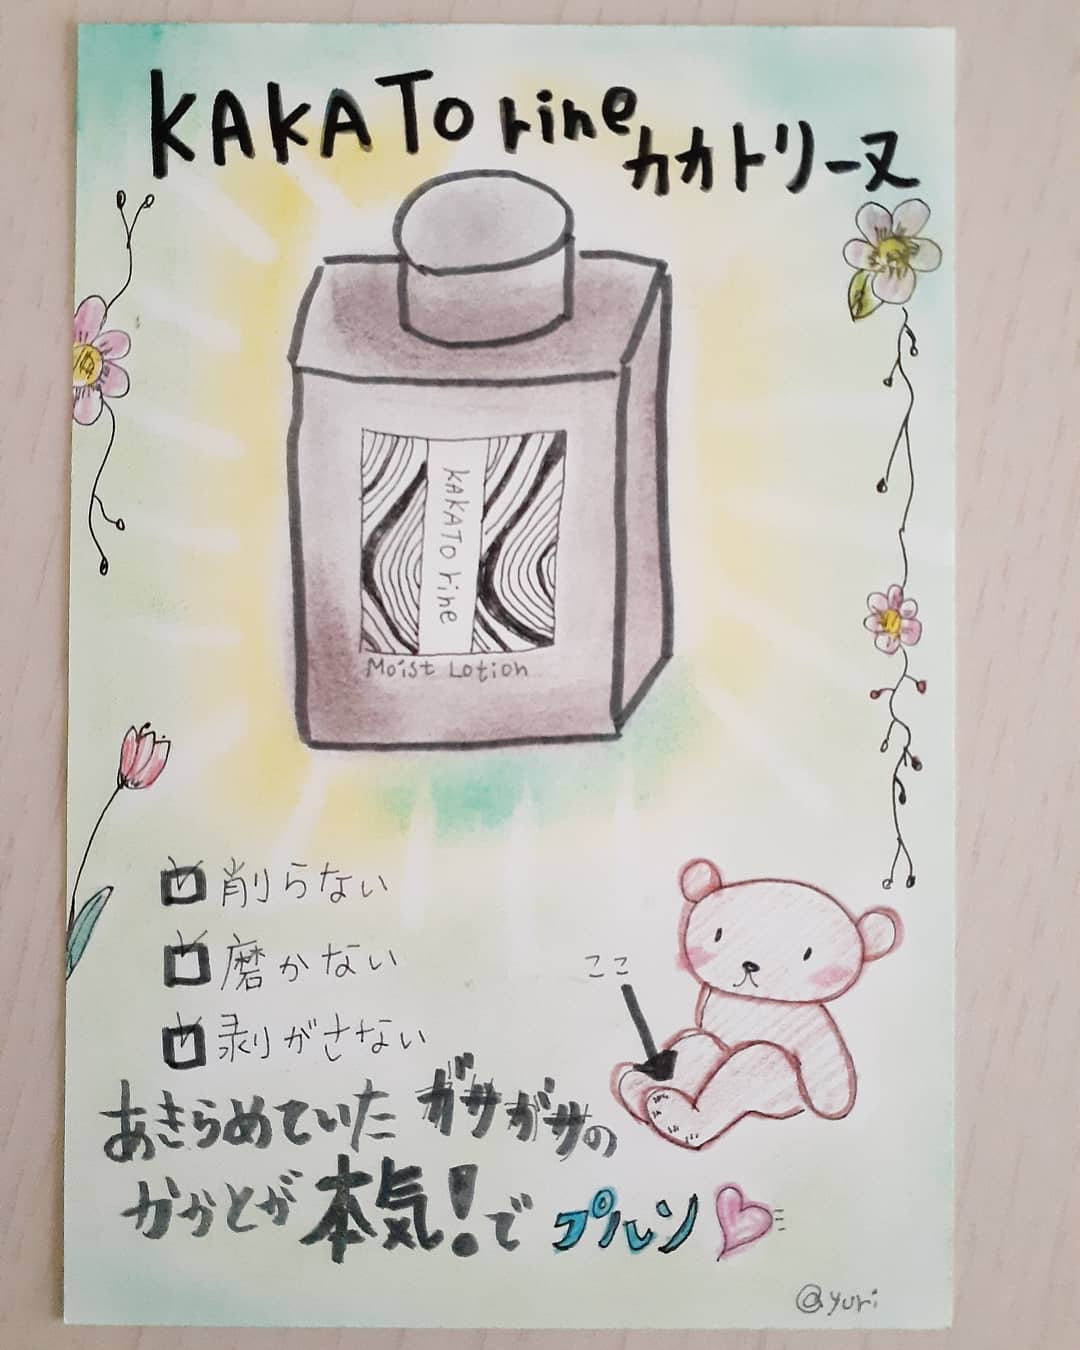 KAKATorine
カカトリーヌ
KAKATorine
Moist Lotion
削らない
磨かない
剥がさない
ここ
あきらめていたガサガサの
かかとが本気!でプルン
@yuri